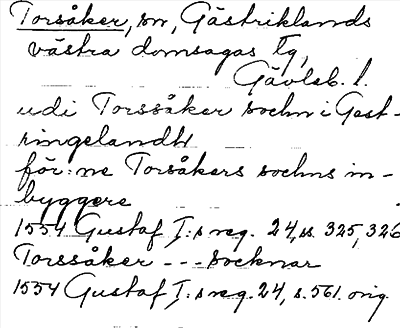 Torsåker, sn, Gästriklands
västra domsagas tg,
Gävleb. l.
udi Torssåker sochn i Gest-
ringelandtt
för:ne Torsåkers sochns in-
byggere
1554 Gustaf I:s reg. 24, ss. 325, 326
Torssåker --- socknar
1554 Gustaf I:s reg. 24, s. 561. orig.